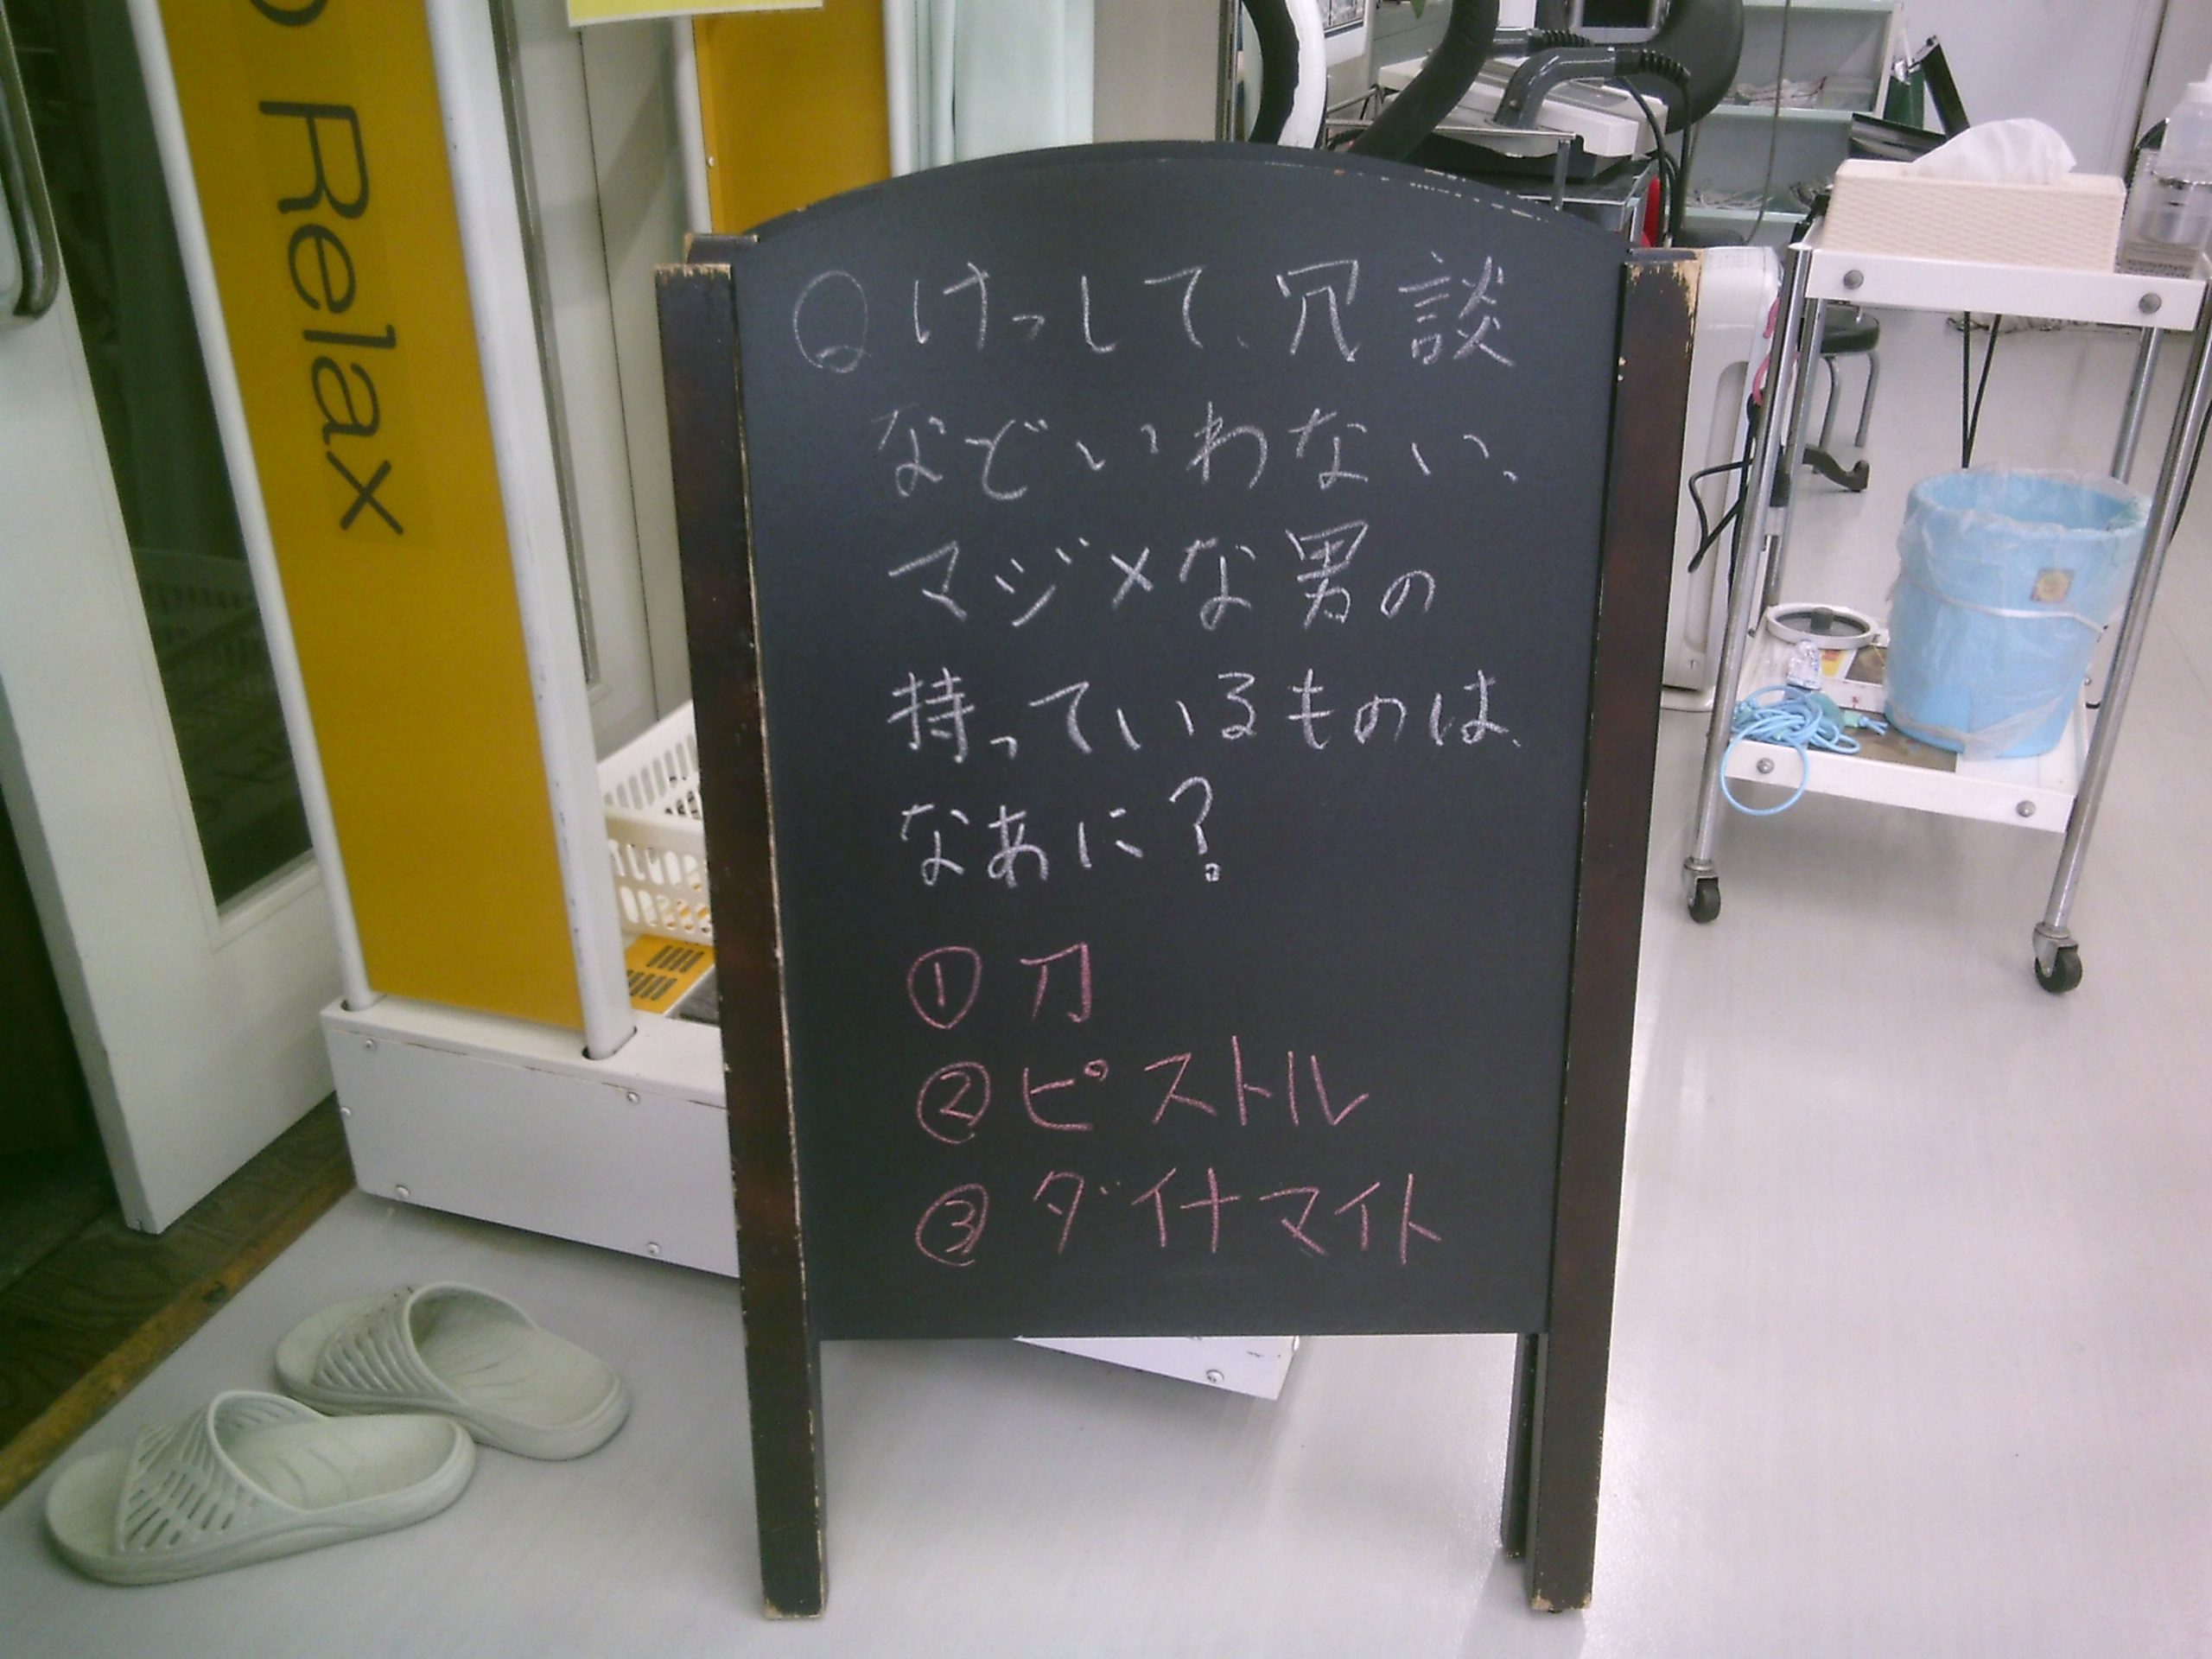 Relax
Q けっして、冗談
などいわない、
マジメな男の
持っているものは、
なあに？
① 刀
② ピストル
③ ダイナマイト